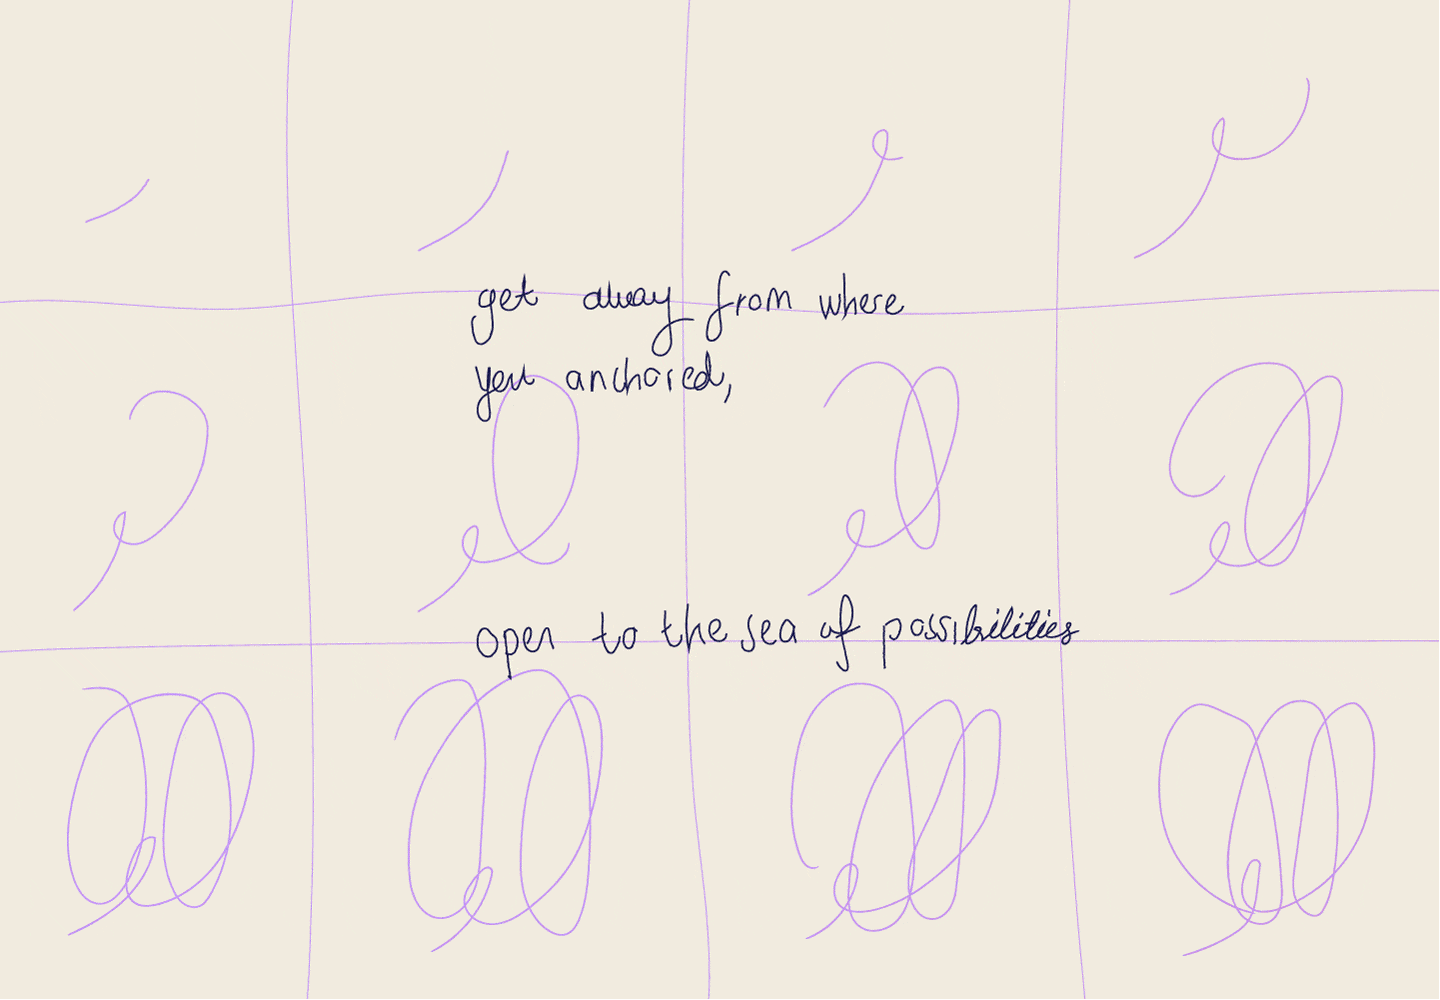 get away from where
you anchored,
open to the sea of possibilities